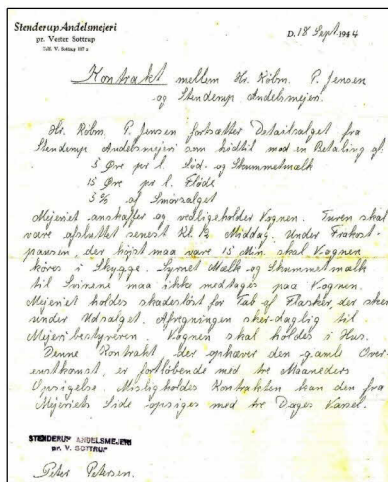 Stenderup Andelsmejeri
pr. Vester Sottrup
D. 18 Sept. 1944
Kontrakt mellem Hr. Købm. P. Jensen
og Stenderup Andelsmejeri.
Hr. Købm. P. Jensen fortsætter Detailsalget fra
Stenderup Andelsmejeri som hidtil mod en Betaling af:
5 Øre pr l. Sød- og Skummetmælk
15 Øre pr l. Fløde
5 % af Smørsalget
Mejeriet anskaffer og vedligeholder Vognen. Turen skal
være afsluttet senest Kl. 12 Middag. Under Frokost-
pausen, der højst maa vare 15 Min. skal Vognen
køres i Skygge. Syrnet Mælk og Skummetmælk
til Svinene maa ikke medtages paa Vognen.
Mejeriet holdes skadesløst for Tab af Flasker, der sker
under Udsalget. Afregningen sker daglig til
Mejeribestyreren. Vognen skal holdes i Hus.
Denne Kontrakt der ophæver den gamle Over-
enskomst, er fortløbende med tre Maaneders
Opsigelse. Misligholdes Kontrakten kan den fra
Mejeriets Side opsiges med tre Dages Varsel.
STENDERUP ANDELSMEJERI
pr. V. SOTTRUP
Peter Petersen.